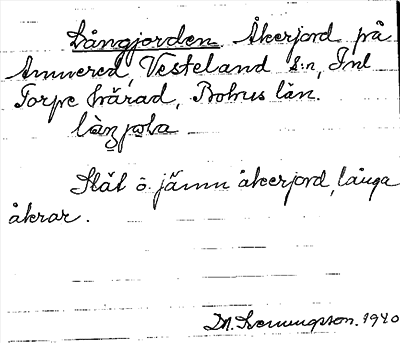 Långjorden Åkerjord på
Anneröd, Västeland s:n, Inl.
Torpe härad, Bohus län.
Slät o. jämn åkerjord, långa
åkrar.
1940